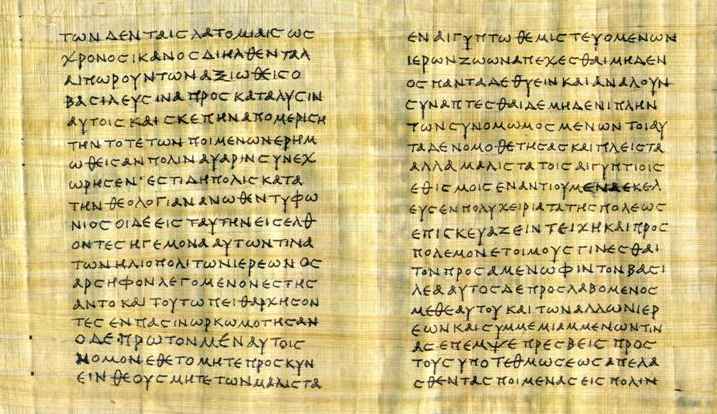 ΤΩΝΔΕΝΤΑΙΣΛΑΤΟΜΙΑΙΣΩΣ
ΧΡΟΝΟΣΙΚΑΝΟΣΔΙΗΛΘΕΝΤΑΛ
ΑΙΠΩΡΟΥΝΤΩΝΑΞΙΩΘΕΙΣΟ
ΒΑΣΙΛΕΥΣΙΝΑΠΡΟΣΚΑΤΑΛΥΣΙΝ
ΑΥΤΟΙΣΚΑΙΣΚΕΠΗΝΑΠΟΜΕΡΙΣΗ
ΤΗΝΤΟΤΕΤΩΝΠΟΙΜΕΝΩΝΕΡΗΜ
ΩΘΕΙΣΑΝΠΟΛΙΝΑΥΑΡΙΝΣΥΝΕΧ
ΩΡΗΣΕΝ·ΕΣΤΙΔΗΠΟΛΙΣΚΑΤΑ
ΤΗΝΘΕΟΛΟΓΙΑΝΑΝΩΘΕΝΤΥΦΩ
ΝΙΟΣΟΙΔΕΕΙΣΤΑΥΤΗΝΕΙΣΕΛΘ
ΟΝΤΕΣΗΓΕΜΟΝΑΑΥΤΩΝΤΙΝΑ
ΤΩΝΗΛΙΟΠΟΛΙΤΩΝΙΕΡΕΩΝΟΣ
ΑΡΣΗΦΟΝΛΕΓΟΜΕΝΟΝΕΣΤΗΣ
ΑΝΤΟΚΑΙΤΟΥΤΩΠΕΙΘΑΡΧΗΣΟΝ
ΤΕΣΕΝΠΑΣΙΝΩΡΚΩΜΟΤΗΣΑΝ
ΟΔΕΠΡΩΤΟΝΜΕΝΑΥΤΟΙΣ
ΝΟΜΟΝΕΘΕΤΟΜΗΤΕΠΡΟΣΚΥΝ
ΕΙΝΘΕΟΥΣΜΗΤΕΤΩΝΜΑΛΙΣΤΑ
ΕΝΑΙΓΥΠΤΩΘΕΜΙΣΤΕΥΟΜΕΝΩΝ
ΙΕΡΩΝΖΩΩΝΑΠΕΧΕΣΘΑΙΜΗΔΕΝ
ΟΣΠΑΝΤΑΔΕΘΥΕΙΝΚΑΙΑΝΑΛΟΥΝ
ΣΥΝΑΠΤΕΣΘΑΙΔΕΜΗΔΕΝΙΠΛΗΝ
ΤΩΝΣΥΝΟΜΩΜΟΣΜΕΝΩΝΤΟΙΑΥ
ΤΑΔΕΝΟΜΟΘΕΤΗΣΑΣΚΑΙΠΛΕΙΣΤΑ
ΑΛΛΑΜΑΛΙΣΤΑΤΟΙΣΑΙΓΥΠΤΙΟΙΣ
ΕΘΙΣΜΟΙΣΕΝΑΝΤΙΟΥΜΕΝΑΕΚΕΛ
ΕΥΣΕΝΠΟΛΥΧΕΙΡΙΑΤΑΤΗΣΠΟΛΕΩΣ
ΕΠΙΣΚΕΥΑΖΕΙΝΤΕΙΧΗΚΑΙΠΡΟΣ
ΠΟΛΕΜΟΝΕΤΟΙΜΟΥΣΓΙΝΕΣΘΑΙ
ΤΟΝΠΡΟΣΑΜΕΝΩΦΙΝΤΟΝΒΑΣΙ
ΛΕΑΑΥΤΟΣΔΕΠΡΟΣΛΑΒΟΜΕΝΟΣ
ΜΕΘΕΑΥΤΟΥΚΑΙΤΩΝΑΛΛΩΝΙΕΡ
ΕΩΝΚΑΙΣΥΜΜΕΜΙΑΜΜΕΝΩΝΤΙΝ
ΑΣΕΠΕΜΨΕΠΡΕΣΒΕΙΣΠΡΟΣ
ΤΟΥΣΥΠΟΤΕΘΜΩΣΕΩΣΑΠΕΛΑ
ΣΘΕΝΤΑΣΠΟΙΜΕΝΑΣΕΙΣΠΟΛΙΝ